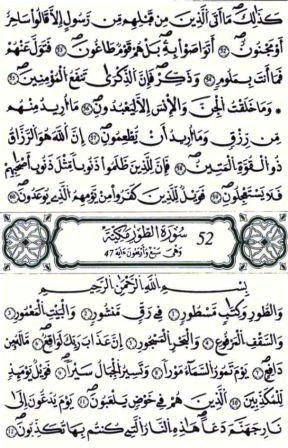 كَذَٰلِكَ مَا أَتَى الَّذِينَ مِن قَبْلِهِم مِّن رَّسُولٍ إِلَّا قَالُوا سَاحِرٌ
أَوْ مَجْنُونٌ ٥٢ أَتَوَاصَوْا بِهِ بَلْ هُمْ قَوْمٌ طَاغُونَ ٥٣ فَتَوَلَّ عَنْهُمْ
فَمَا أَنتَ بِمَلُومٍ ٥٤ وَذَكِّرْ فَإِنَّ الذِّكْرَىٰ تَنفَعُ الْمُؤْمِنِينَ ٥٥
وَمَا خَلَقْتُ الْجِنَّ وَالْإِنسَ إِلَّا لِيَعْبُدُونِ ٥٦ مَا أُرِيدُ مِنْهُم
مِّن رِّزْقٍ وَمَا أُرِيدُ أَن يُطْعِمُونِ ٥٧ إِنَّ اللَّهَ هُوَ الرَّزَّاقُ
ذُو الْقُوَّةِ الْمَتِينُ ٥٨ فَإِنَّ لِلَّذِينَ ظَلَمُوا ذَنُوبًا مِّثْلَ ذَنُوبِ أَصْحَابِهِمْ
فَلَا يَسْتَعْجِلُونِ ٥٩ فَوَيْلٌ لِّلَّذِينَ كَفَرُوا مِن يَوْمِهِمُ الَّذِي يُوعَدُونَ ٦٠
52 سُورَةُ الطُّورِ مَكِّيَّةٌ
وَهِيَ سَبْعٌ وَأَرْبَعُونَ ءَايَةً 47
بِسْمِ اللَّهِ الرَّحْمَٰنِ الرَّحِيمِ
وَالطُّورِ وَكِتَابٍ مَّسْطُورٍ ١ فِي رَقٍّ مَّنشُورٍ ٢ وَالْبَيْتِ الْمَعْمُورِ ٣
وَالسَّقْفِ الْمَرْفُوعِ ٤ وَالْبَحْرِ الْمَسْجُورِ ٥ إِنَّ عَذَابَ رَبِّكَ لَوَاقِعٌ ٦ مَّا لَهُ مِن
دَافِعٍ ٧ يَوْمَ تَمُورُ السَّمَاءُ مَوْرًا ٨ وَتَسِيرُ الْجِبَالُ سَيْرًا ٩ فَوَيْلٌ يَوْمَئِذٍ
لِّلْمُكَذِّبِينَ ١٠ الَّذِينَ هُمْ فِي خَوْضٍ يَلْعَبُونَ ١١ يَوْمَ يُدَعُّونَ إِلَىٰ
نَارِ جَهَنَّمَ دَعًّا هَٰذِهِ النَّارُ الَّتِي كُنتُم بِهَا تُكَذِّبُونَ ١٢